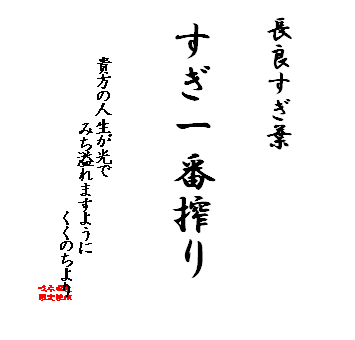 長良すぎ葉
すぎ一番搾り
貴方の人生が光で
みち溢れますように
くくのちより